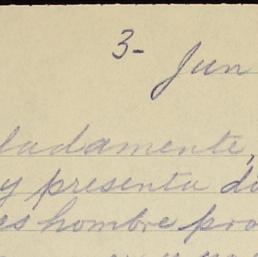 3-
Jun
ladamente,
y presenta do
es hombre pro